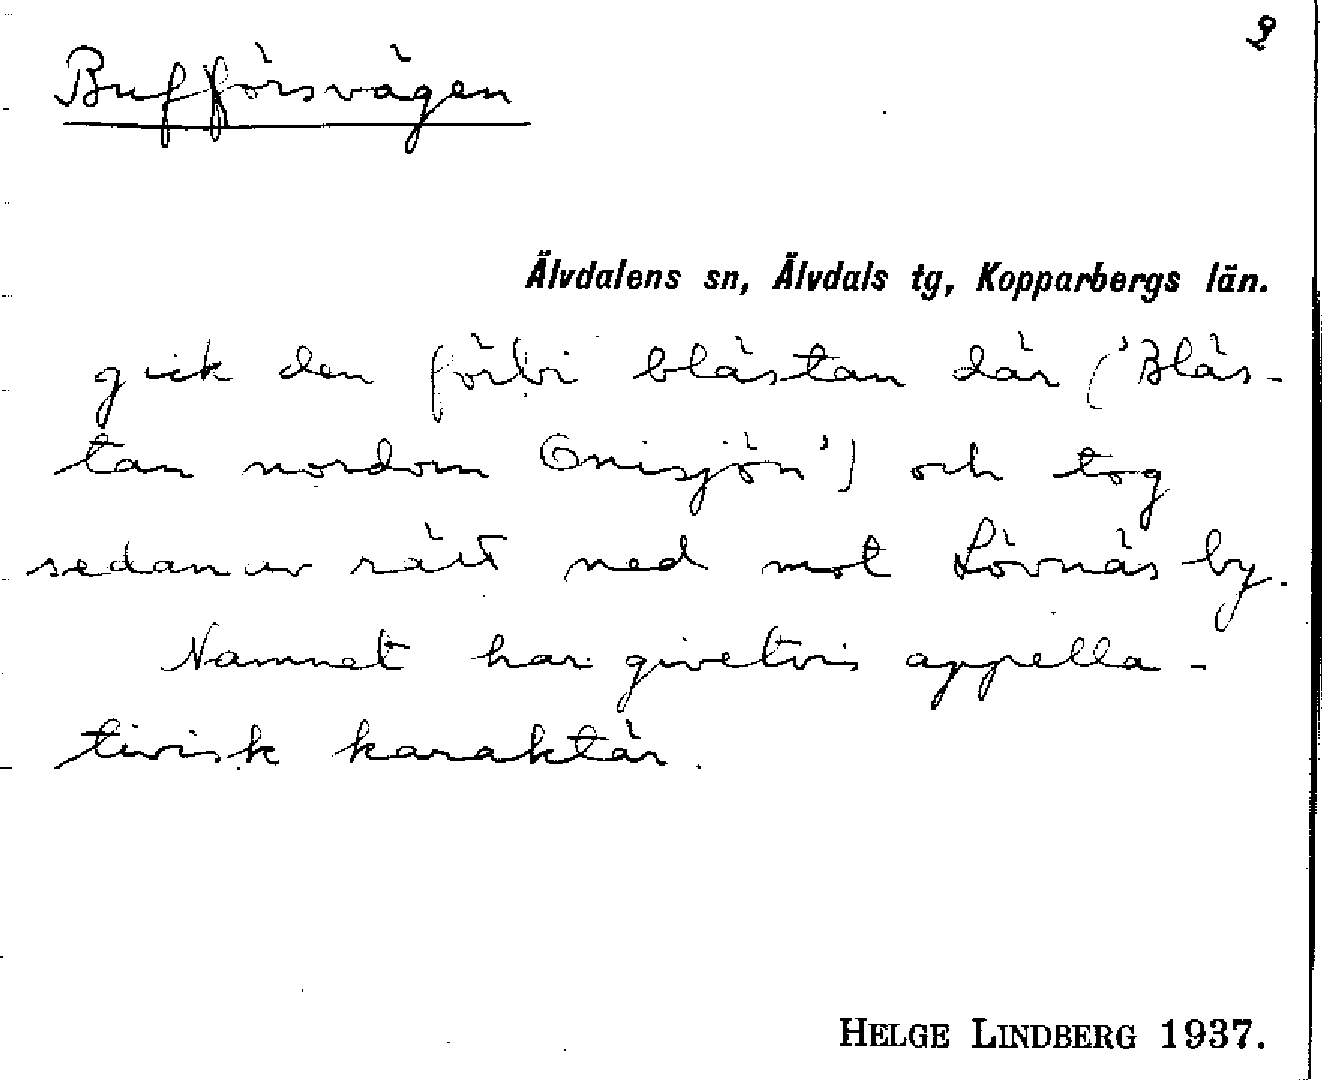 2
Bufförsvägen
Älvdalens sn, Älvdals tg, Kopparbergs län.
gick den förbi blästan där ('Bläs-
tan nordom Onisjön') och tog
sedan av rätt ned mot Lövnäs by.
Namnet har givetvis appella-
tivisk karaktär.
HELGE LINDBERG 1937.